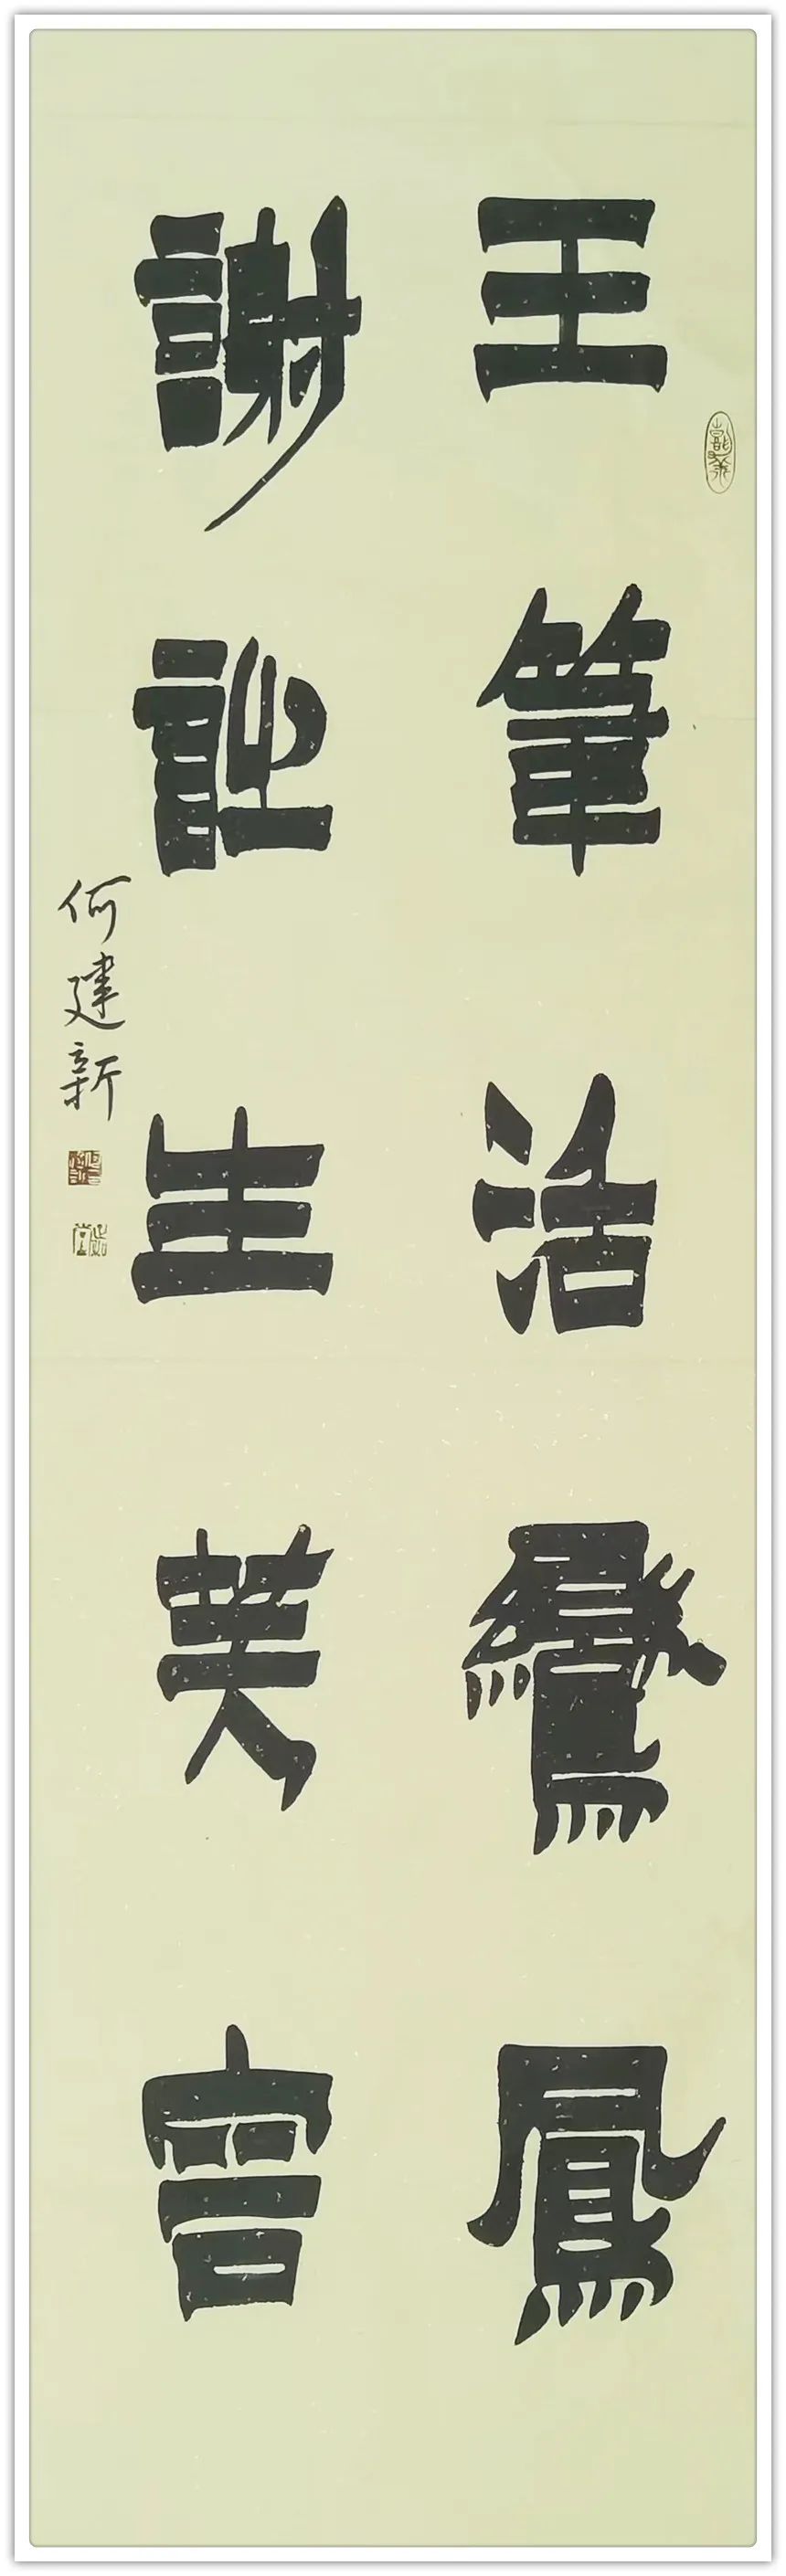 王筆活鸞鳳
謝詩生芙容
何建新